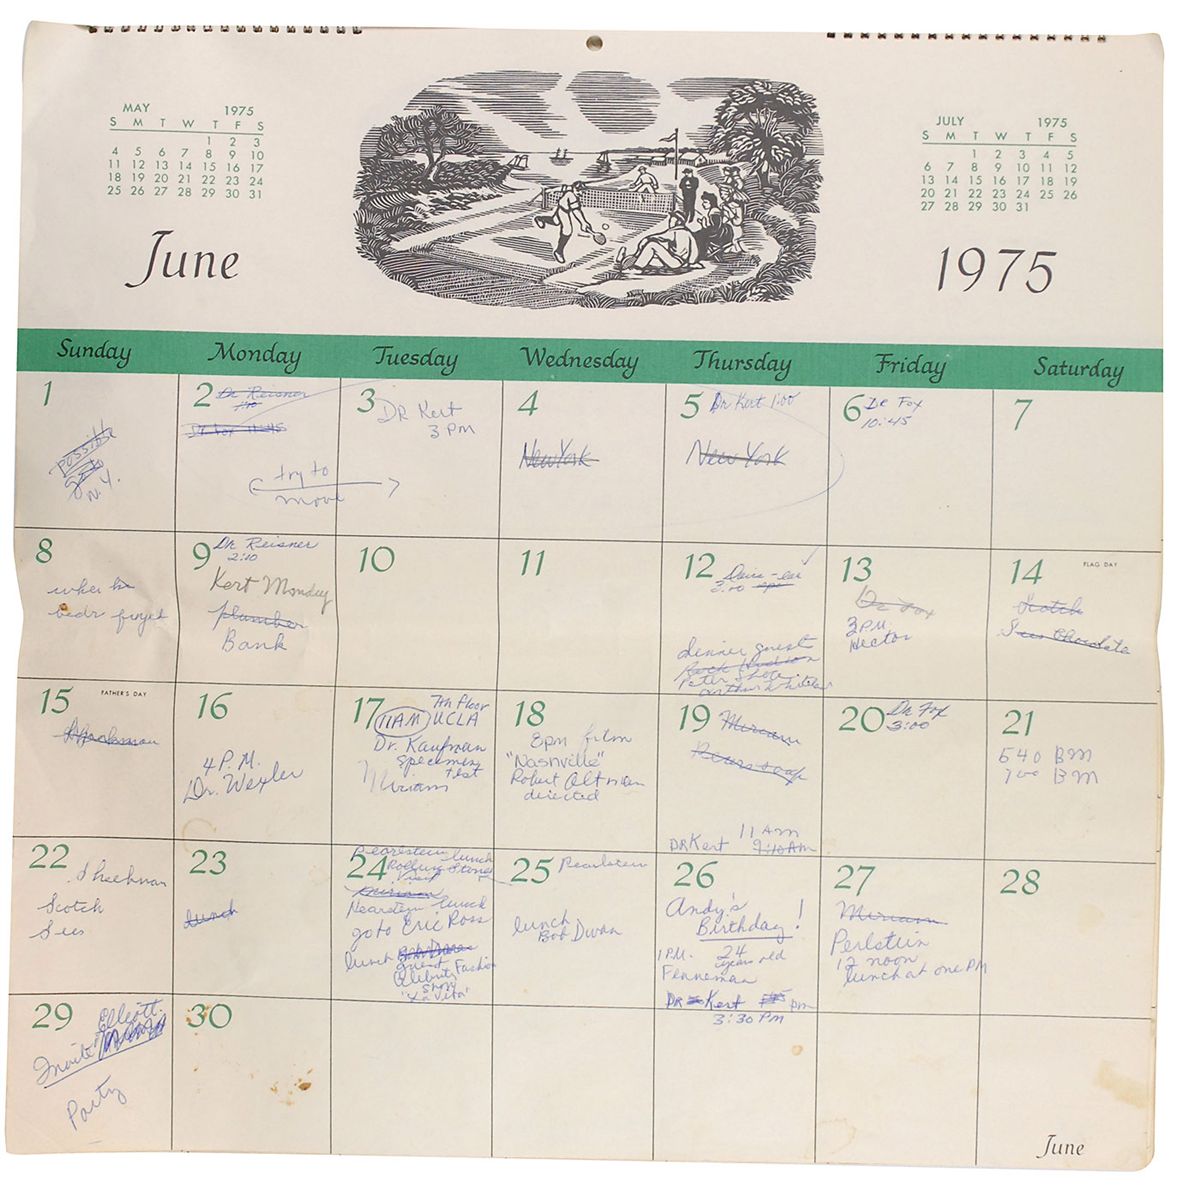 MAY 1975
S M T W T F S
1 2 3
4 5 6 7 8 9 10
11 12 13 14 15 16 17
18 19 20 21 22 23 24
25 26 27 28 29 30 31
JULY 1975
S M T W T F S
1 2 3 4 5
6 7 8 9 10 11 12
13 14 15 16 17 18 19
20 21 22 23 24 25 26
27 28 29 30 31
June
1975
Sunday Monday Tuesday Wednesday Thursday Friday Saturday
1
possible
go to
N.Y.
2 Dr Reisner
1:10
Dr Fox 11:45
try to
move
3 DR Kert
3 PM
4
New York
5 Dr Kert 1:00
New York
6 Dr Fox
10:45
7
8
9 Dr Reisner
2:10
Kert Monday
plumber
Bank
10
11
12
3:00
dinner guest
Rock Hudson
Peter Shore
13
Dr Fox
3 P.M.
Hector
14 FLAG DAY
Scotch
Sees Chocolate
15 FATHER'S DAY
16
4 P.M.
Dr. Wexler
17 11AM 7th floor
UCLA
Dr. Kaufman
specimen
test
Miriam
18
8pm film
"Nashville"
Robert Altman
directed
19 Miriam
11 AM
DR Kert 9:10 AM
20 Dr Fox
3:00
21
540 BM
700 BM
22 Sheekman
Scotch
Sees
23
lunch
24 lunch
Rolling Stones
Miriam
lunch
go to Eric Ross
lunch Bob Dwan
guest
Celebrity Fashion
show
"La Vita"
25 Pearlstein
lunch
Bob Dwan
26
Andy's
Birthday!
1 P.M. 24
years old
Fenneman
DR Kert pm
3:30 PM
27
Miriam
Perlstein
12 noon
lunch at one PM
28
29 Elliott
Invite
Party
30
June